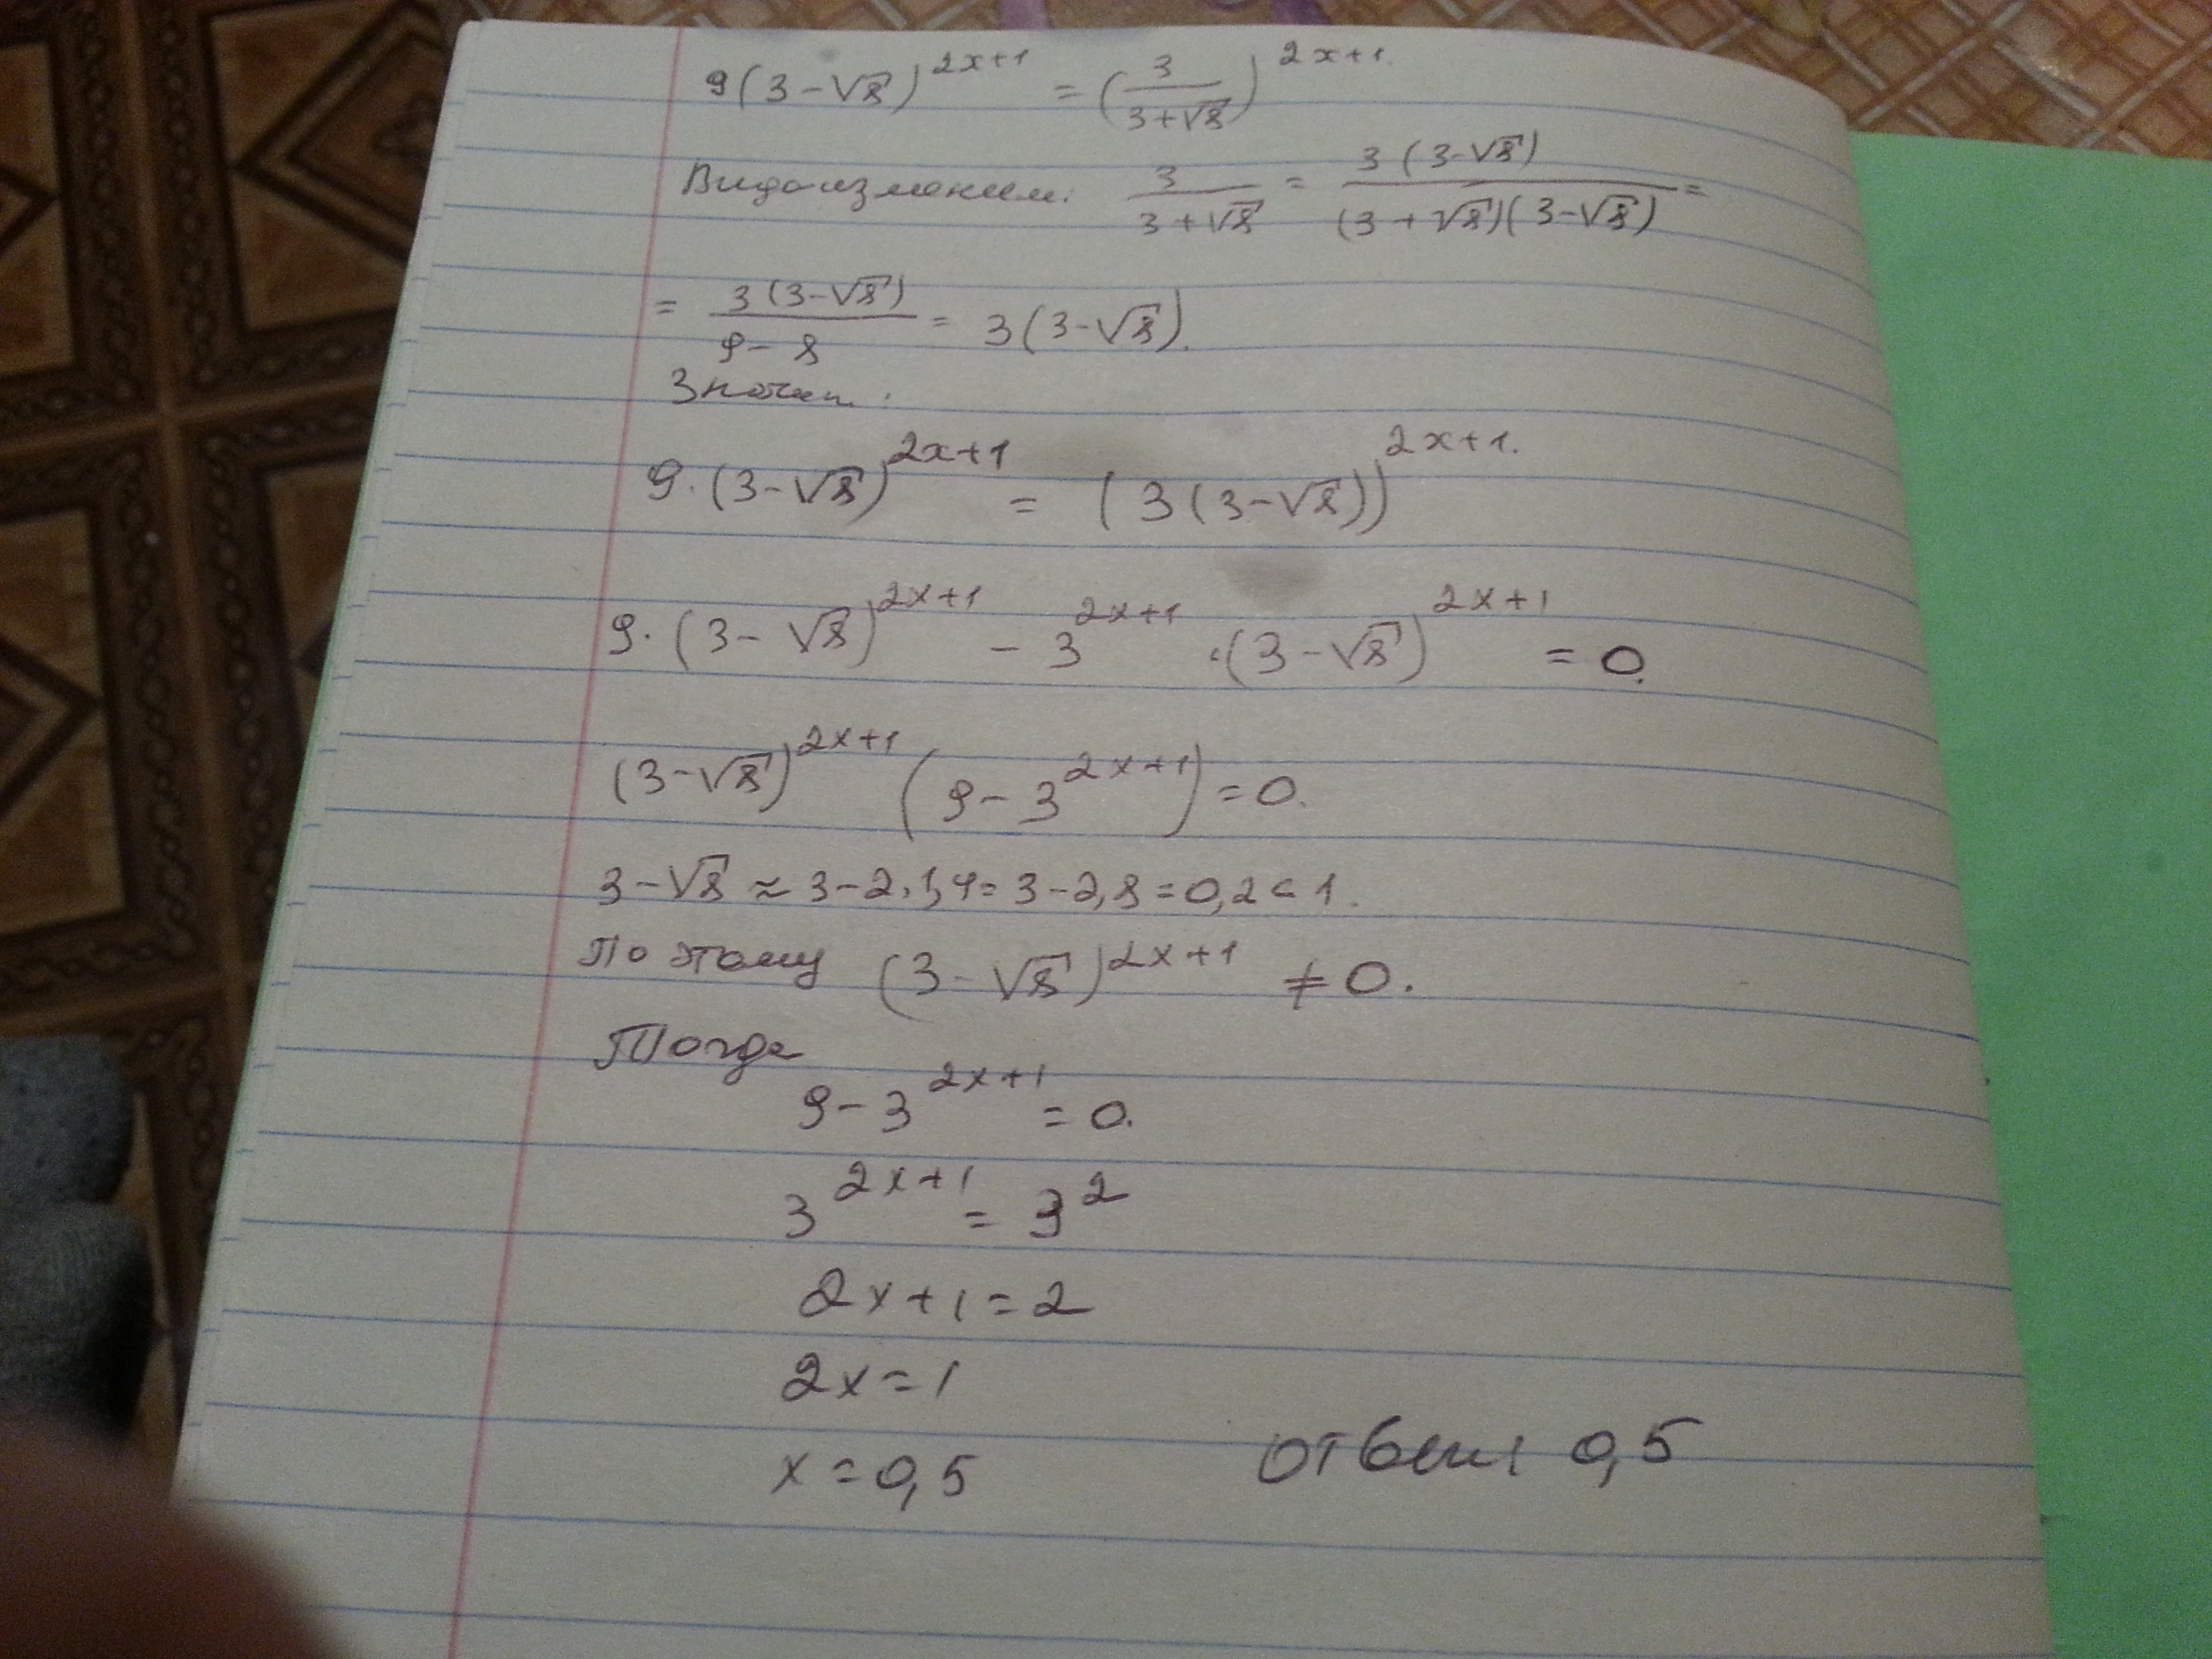 9(3-√8)^{2x+1} = (3/(3+√8))^{2x+1}.
Видоизменим: 3/(3+√8) = 3(3-√8)/((3+√8)(3-√8)) =
= 3(3-√8)/(9-8) = 3(3-√8).
Значит:
9·(3-√8)^{2x+1} = (3(3-√8))^{2x+1}.
9·(3-√8)^{2x+1} - 3^{2x+1}·(3-√8)^{2x+1} = 0.
(3-√8)^{2x+1} (9-3^{2x+1}) = 0.
3-√8 ≈ 3-2·1,4 = 3-2,8 = 0,2 < 1.
Поэтому (3-√8)^{2x+1} ≠ 0.
Тогда
9-3^{2x+1} = 0.
3^{2x+1} = 3^2
2x+1 = 2
2x = 1
x = 0,5 Ответ: 0,5